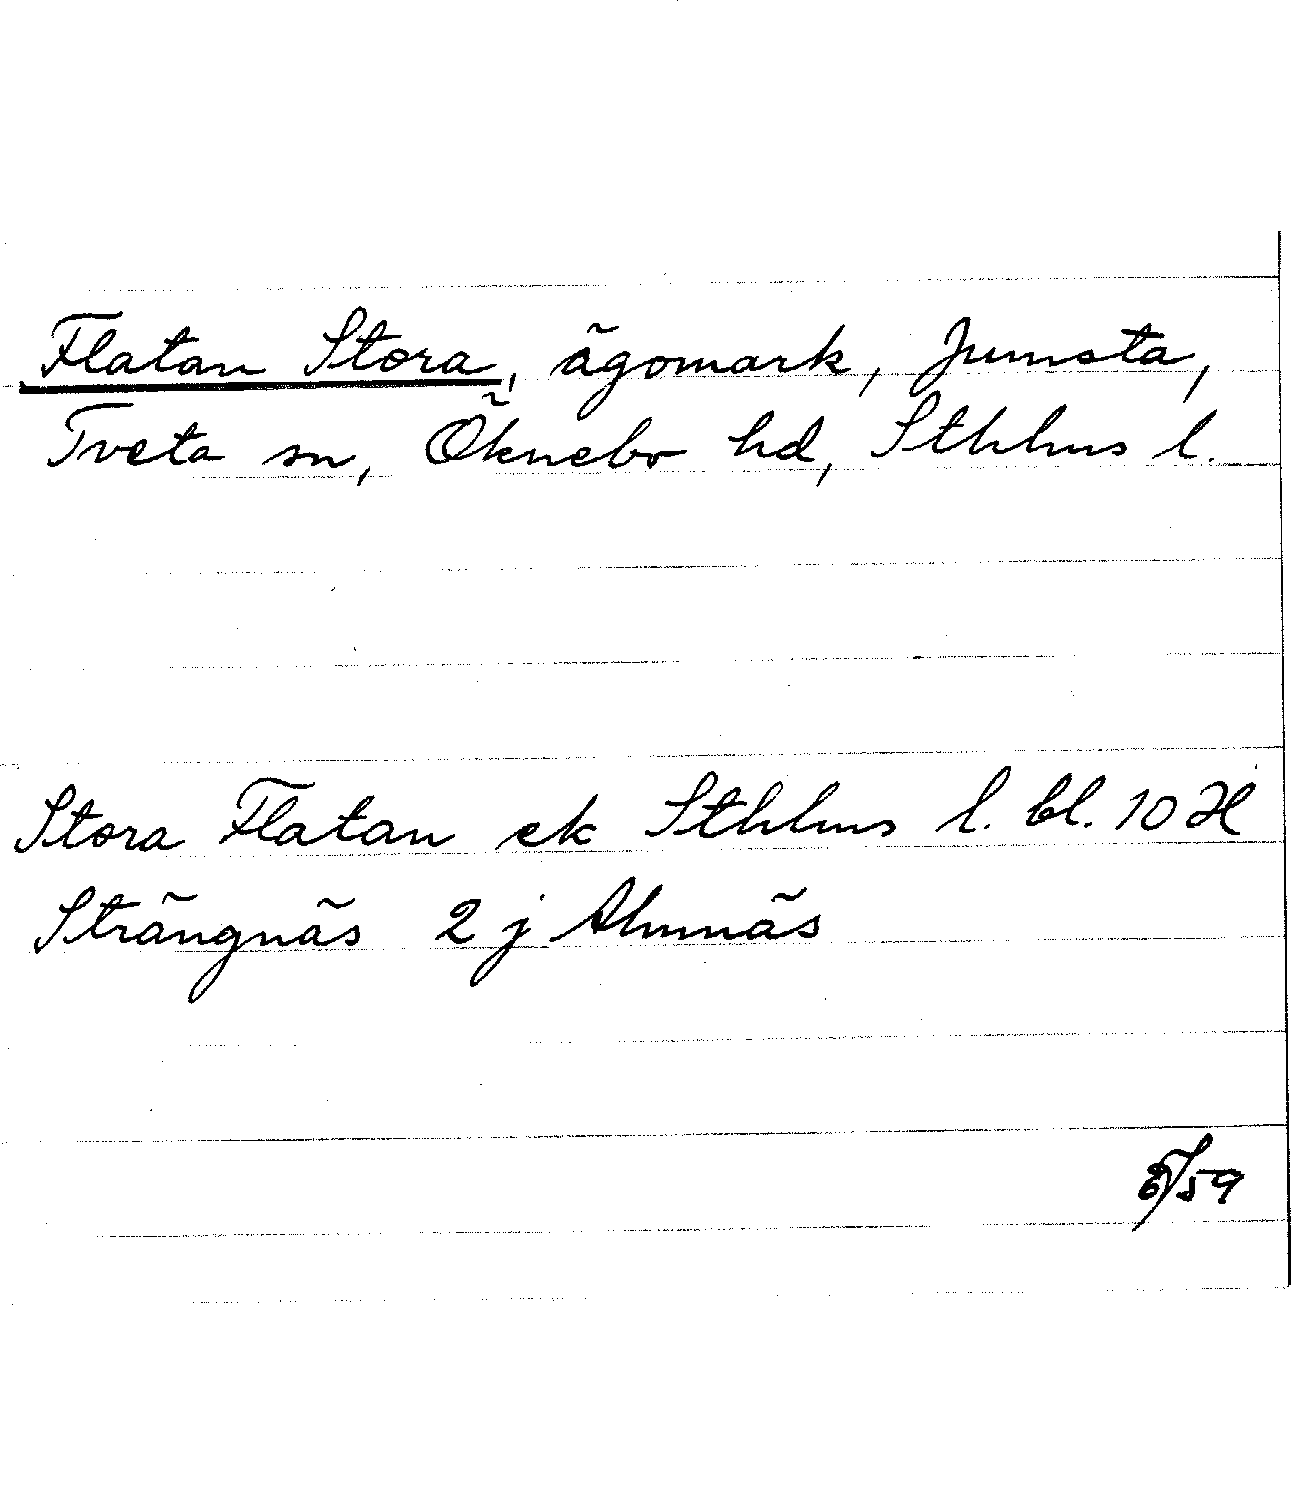 Flatan Stora, ägomark, Jumsta,
Tveta sn, Öknebo hd, Sthlms l.
Stora Flatan ek Sthlms l. bl. 10 H
Strängnäs 2 j Almnäs
6/59